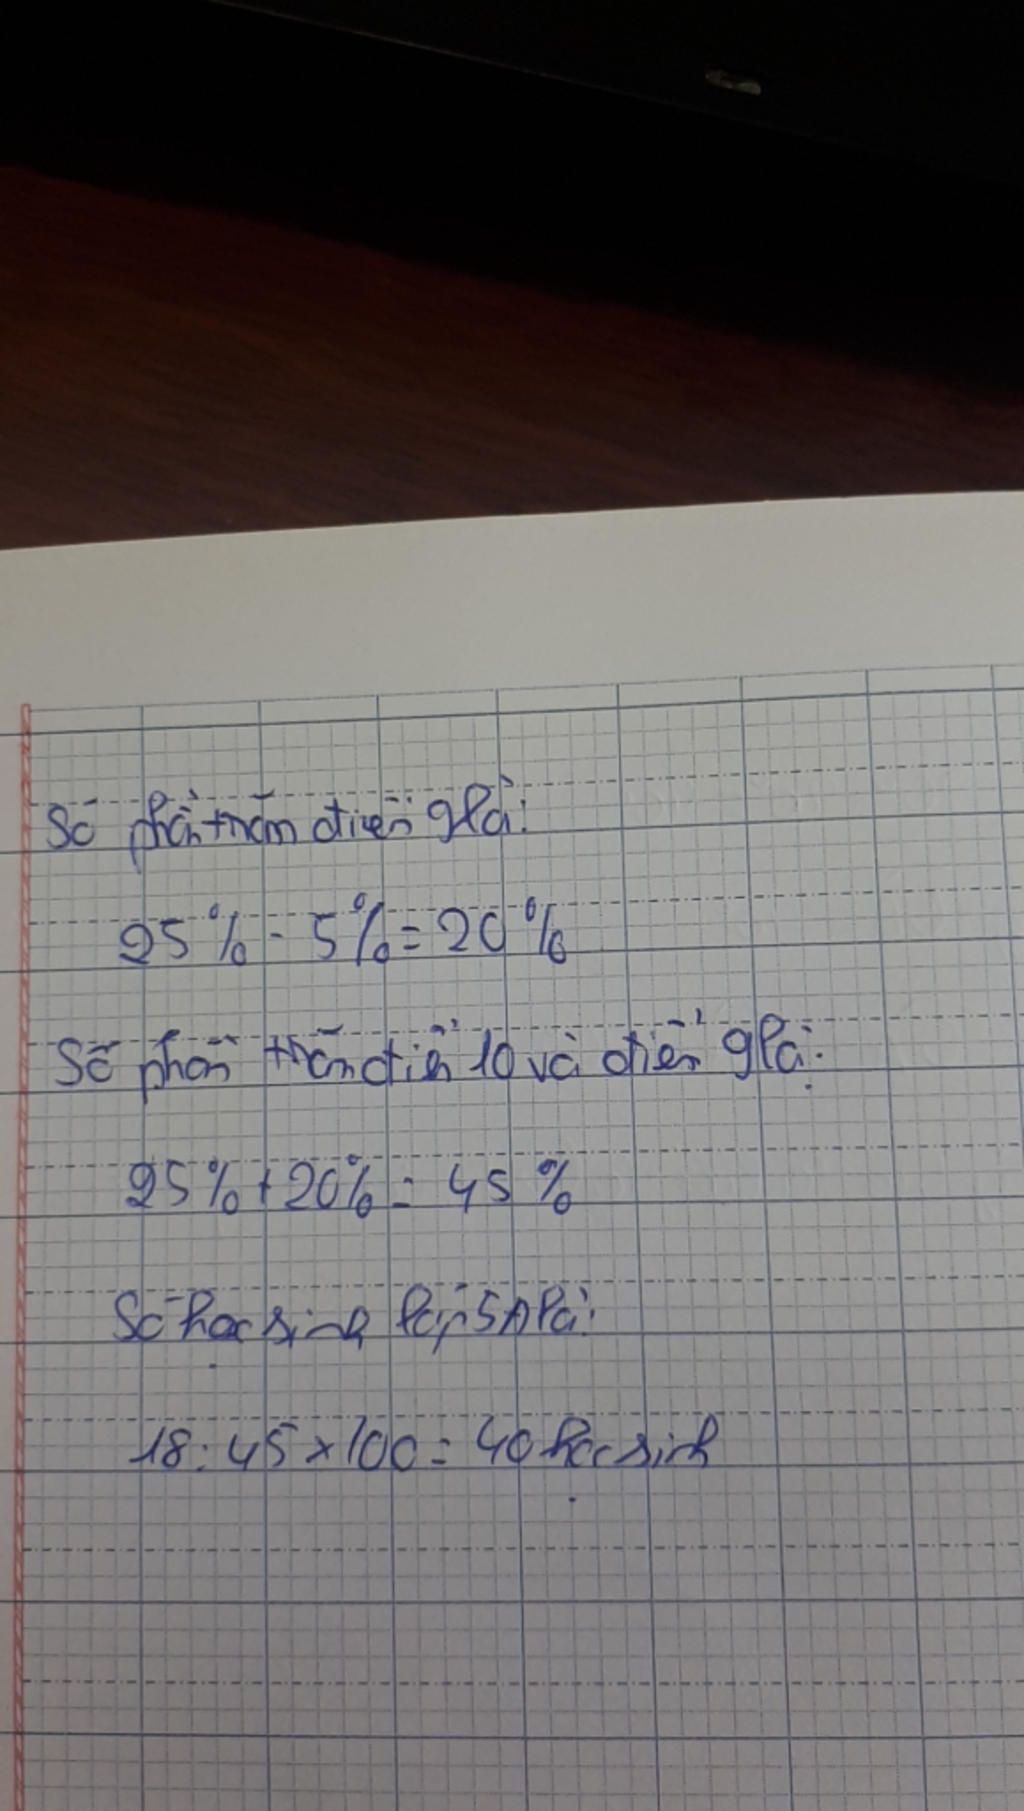 Số phần trăm điểm 9 là:
25% - 5% = 20%
Số phần trăm điểm 10 và điểm 9 là:
25% + 20% = 45%
Số học sinh lớp 5A là:
18 : 45 x 100 = 40 học sinh